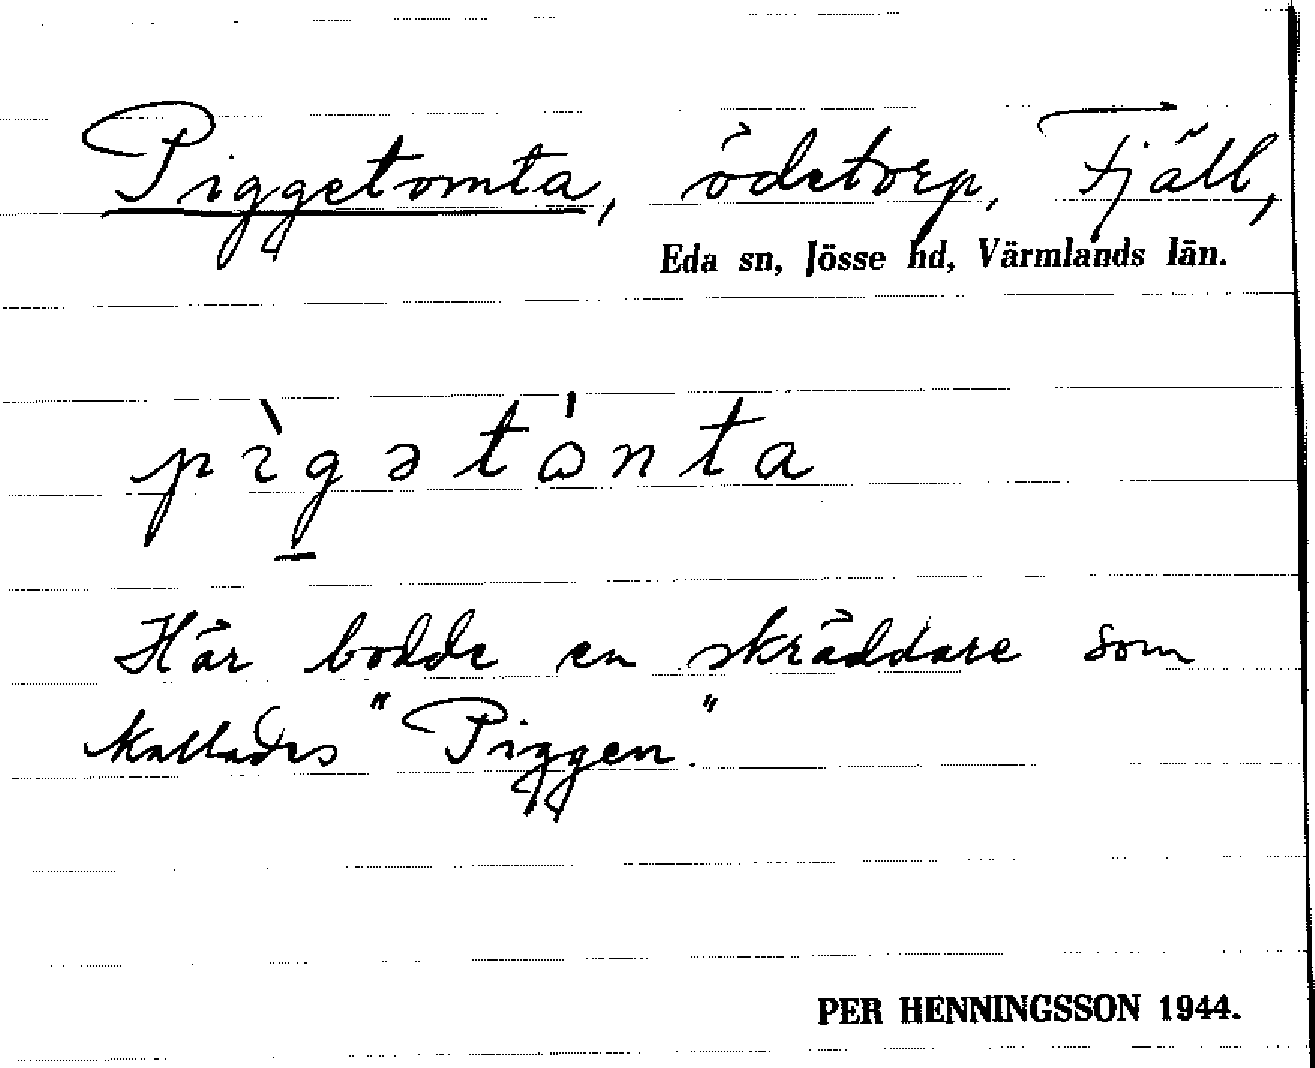 Piggetomta, ödetorp, Fjäll,
Eda sn, Jösse hd, Värmlands län.
pìgətɷ́nta
Här bodde en skräddare som
kallades "Piggen."
PER HENNINGSSON 1944.